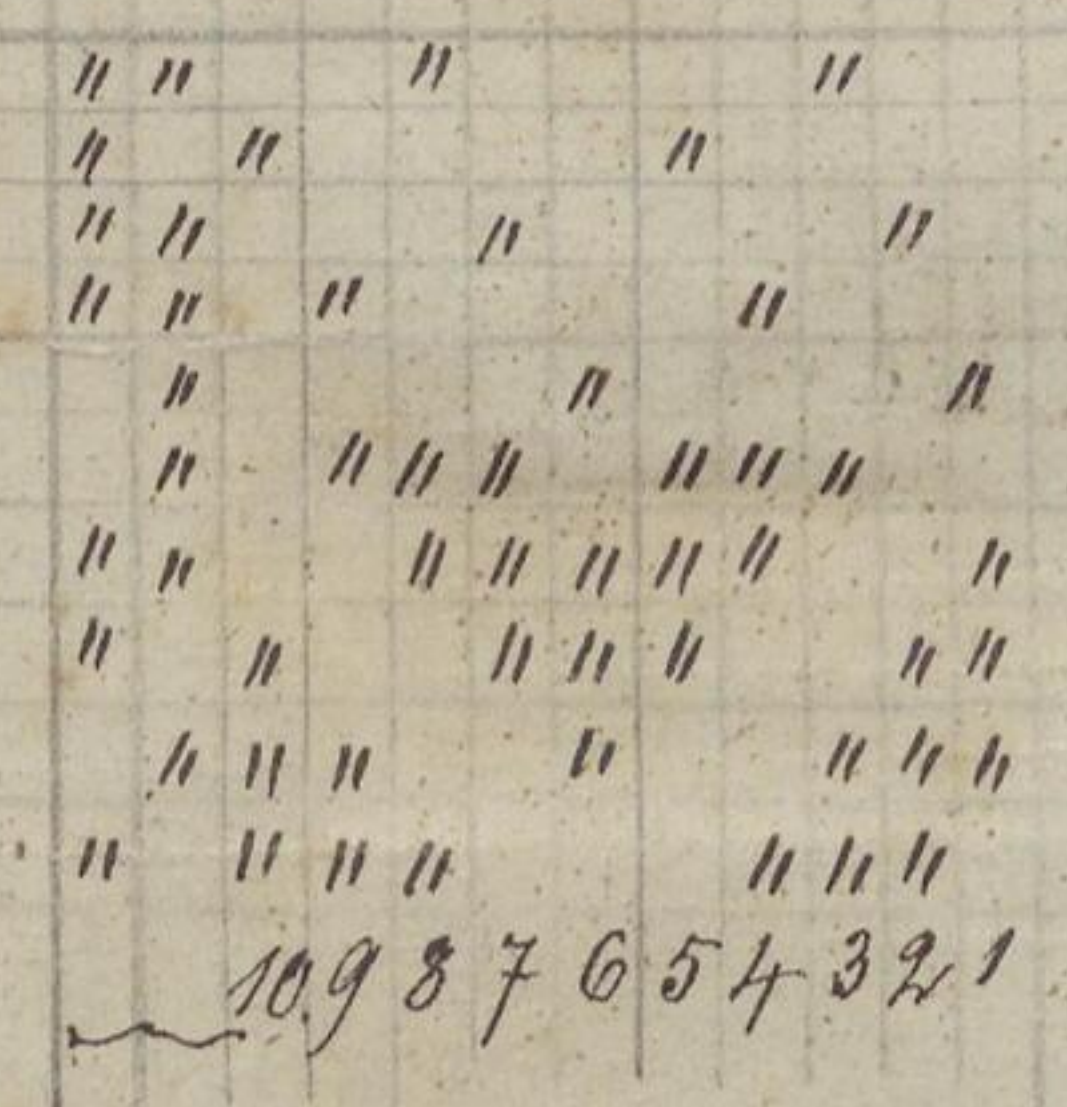 〃 〃 〃 〃
〃 〃 〃
〃 〃 〃 〃
〃 〃 〃 〃
〃 〃 〃
〃 〃 〃 〃 〃 〃 〃
〃 〃 〃 〃 〃 〃 〃 〃
〃 〃 〃 〃 〃 〃 〃
〃 〃 〃 〃 〃 〃 〃
〃 〃 〃 〃 〃 〃 〃
10. 9 8 7 6 5 4 3 2 1